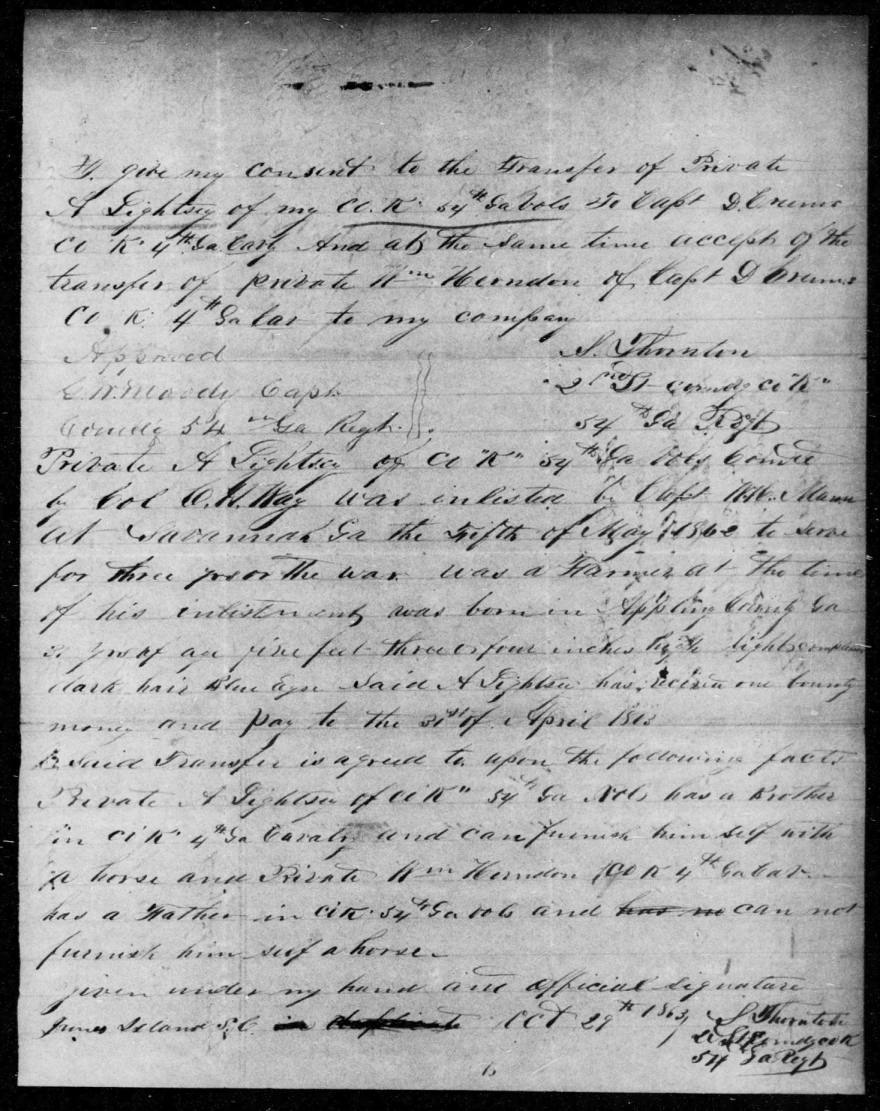 I give my consent to the transfer of Private
A Lightsey of my Co. K. 54th Ga Vols To Capt D. Crum
Co K. 4th Ga Cavly And at the same time accept of the
transfer of private Wm Herndon of Capt D Crums
Co K. 4th Ga Cav to my company
Approved
S. Thornton
G. W. Moody Capt
2nd Lt comdg co "K"
Comdg 54 Ga Regt.
54th Ga Regt
Private A Lightsey of Co "K" 54th Ga Vols
by Col C. H. Way was inlisted by Capt
At Savannah Ga the Fifth of May 1862 to serve
for three yrs or the war. was a Farmer at the time
of his inlistment was born in Appling County Ga
yrs of age five feet three or four inches high light complexion
dark hair Blue Eyes Said A Lightsey has received one bounty
money and pay to the 31st of April 1863
Said Transfer is agreed to upon the following facts
Private A Lightsey of Co K" 54th Ga Vols has a Brother
in Co K" 4th Ga Cavalry and can furnish him self with
a horse and Private Wm Herndon Co K 4th Ga Cav.
has a Father in Co K. 54th Ga vols and has no can not
furnish him self a horse
given under my hand and official signature
James Island S.C. in duplicate Oct 29th 1863
S Thornton
2d Lt Comdg co K
54 Ga Regt